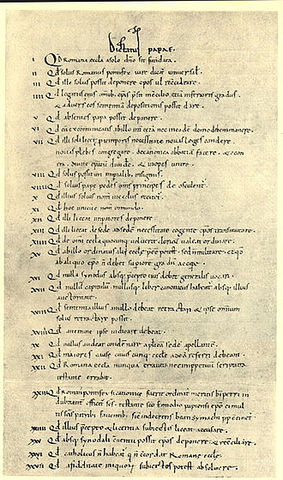 Dictatus papae.
I Qd Romana ecclesia a solo dno sit fundata.
II Qd solus Romanus pontifex iure dicat universalis.
III Qd ille solus possit deponere epos vel reconciliare.
IIII Qd legatus eius omnibus epis presit in concilio etiam inferioris gradus
& adversus eos sententiam depositionis possit dare.
V Qd absentes papa possit deponere.
VI Qd cum excommunicatis ab illo inter cetera nec in eade domo debemus manere.
VII Qd illi soli licet pro temporis necessitate novas leges condere
novas plebes congregare de canonica abbatiam facere & e contra
divitem episcopatum dividere & inopes unire.
VIII Qd solus possit uti imperialibus insigniis.
VIIII Qd solius pape pedes omnes principes deosculentur.
X Qd illius solius nomen in ecclesiis recitetur.
XI Qd hoc unicum est nomen in mundo.
XII Qd illi liceat imperatores deponere.
XIII Qd illi liceat de sede ad sedem necessitate cogente epos transmutare.
XIIII Qd de omni ecclesia quocunque voluerit clericum valeat ordinare.
XV Qd ab illo ordinatus alii ecclesie preesse potest sed non militare et quod
ab aliquo epo non debet superiorem gradum accipere.
XVI Qd nulla synodus absque precepto eius debet generalis vocari.
XVII Qd nullum capitulum nullusque liber canonicus habeatur absque illius
auctoritate.
XVIII Qd sententia illius a nullo debeat retractari & ipse omnium
solus retractare possit.
XVIIII Qd a nemine ipse iudicari debeat.
XX Qd nullus audeat condemnare apostolicam sedem apellantem.
XXI Qd maiores cause cuiuscunque ecclesie ad eam referri debeant.
XXII Qd Romana ecclesia nunquam erravit nec in perpetuum scriptura
testante errabit.
XXIII Qd Romanus pontifex si canonice fuerit ordinatus meritis beati petri in-
dubitanter efficitur scs testante sco Ennodio papiensi epo ei mul-
tis scis patribus faventibus sicut in decretis beati symachi pp continetur.
XXIIII Qd illius precepto & licentia subiectis liceat accusare.
XXV Qd absque synodali conventu possit epos deponere & reconciliare.
XXVI Qd catholicus non habeatur qui non concordat Romane ecclesie.
XXVII Qd a fidelitate iniquorum subiectos potest absolvere.